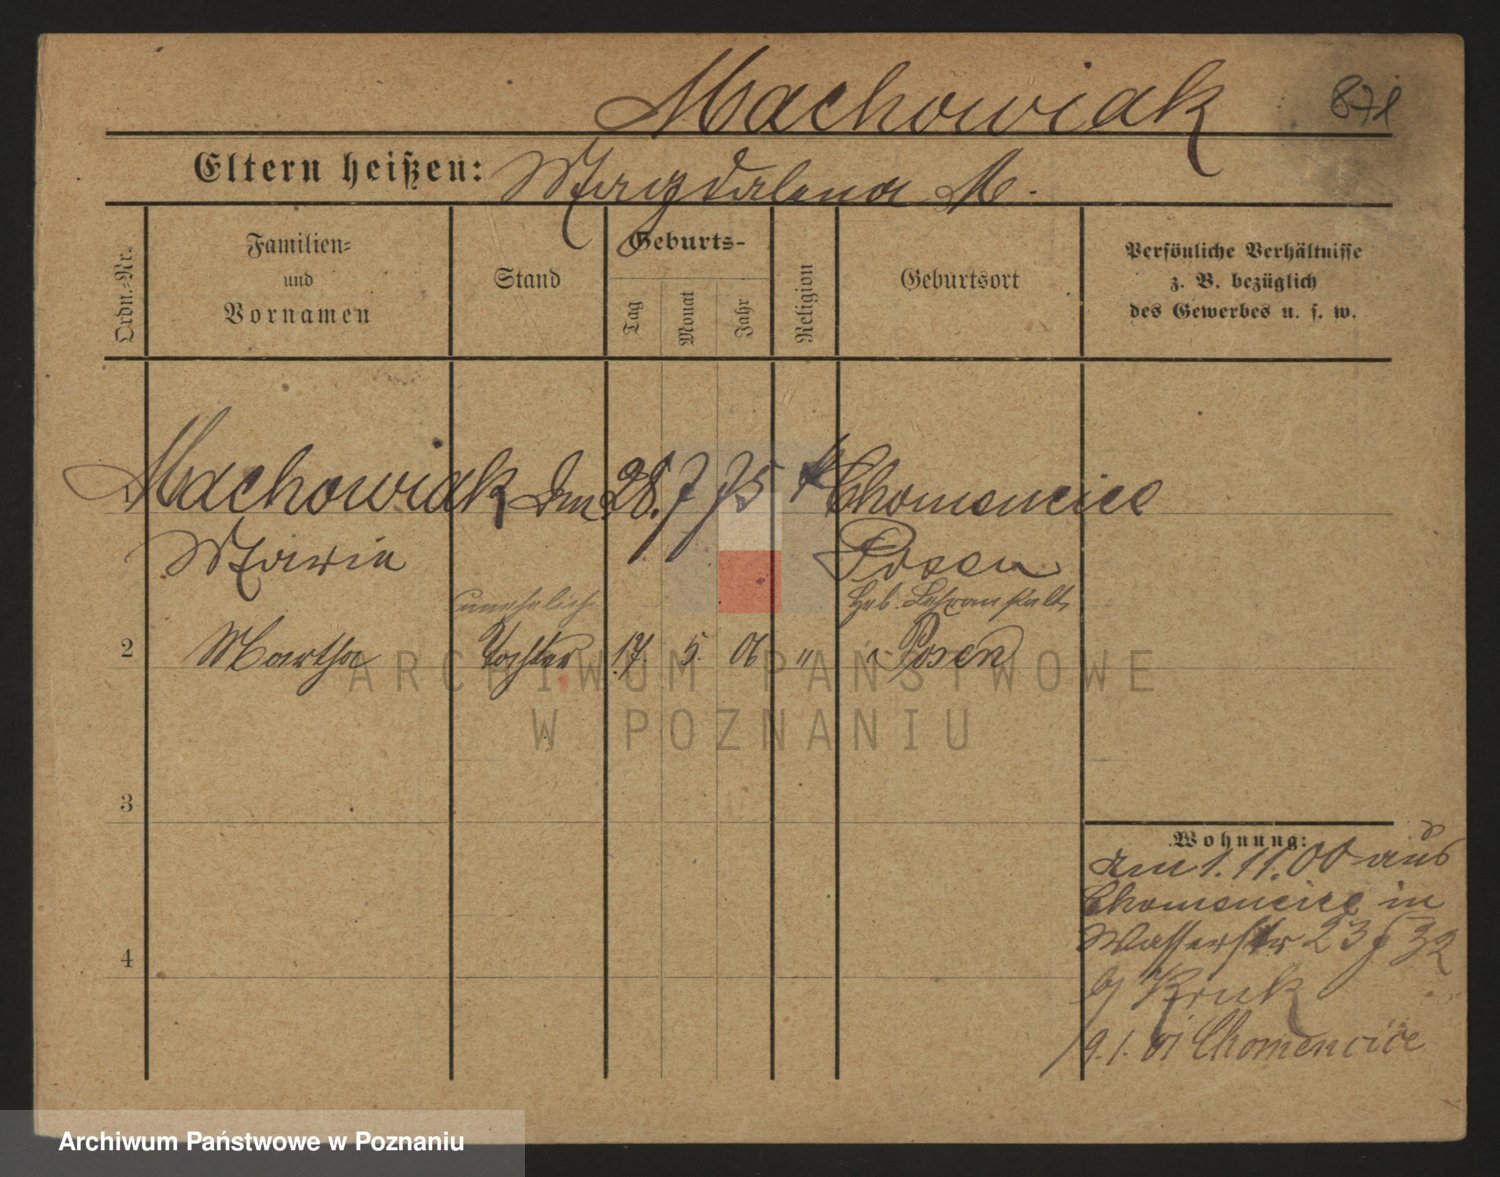 Machowiak
871
Eltern heißen: Magdalena M.
Ordn.-Nr.
Familien-
und
Vornamen
Stand
Geburts-
Tag
Monat
Jahr
Religion
Geburtsort
Persönliche Verhältnisse
z. B. bezüglich
des Gewerbes u. s. w.
Machowiak 28. 7 75 k Chomencice
Marie Posen
unehelich Heb. Lehranstalt
2 Martha Tochter 17. 5. 06 " Posen
ARCHIWUM PAŃSTWOWE
W POZNANIU
3
Wohnung:
am 1. 11. 00 aus
Chomencice in
4
Wasserstr 23
Kruk
9. 1. 01 Chomencice
Archiwum Państwowe w Poznaniu